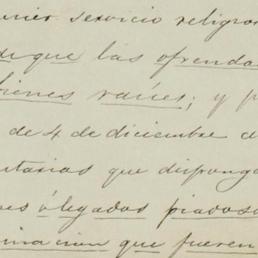 servicio religio
que las ofrenda
bienes raices; y p
de 4 de diciembre d
que disponga
es ó legados piadoso
que fueren